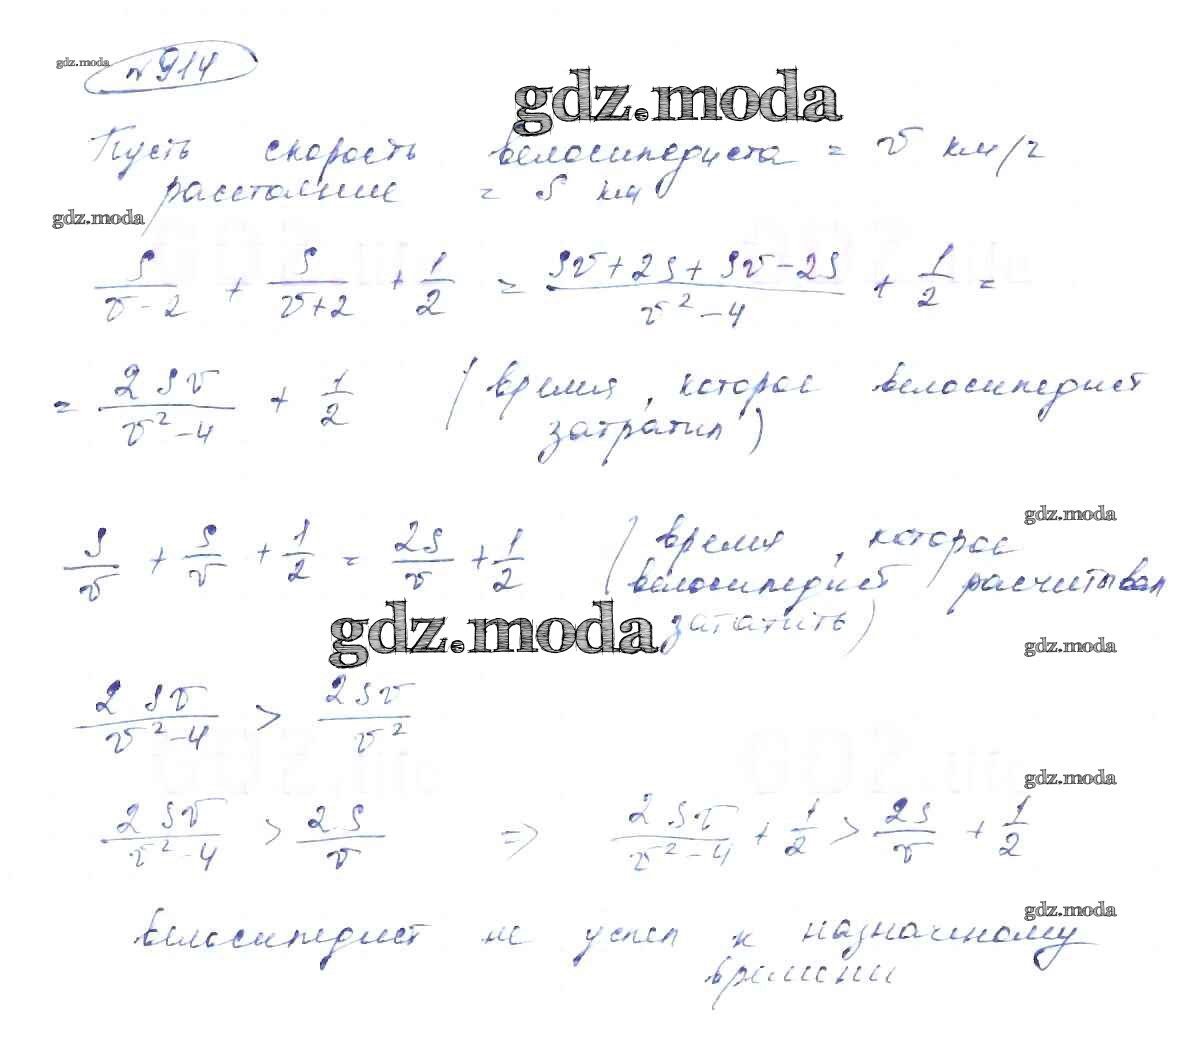 gdz.moda
№914
gdz.moda
Пусть скорость велосипедиста = v км/ч
расстояние = s км
gdz.moda
s/(v-2) + s/(v+2) + 1/2 = (sv+2s+sv-2s)/(v²-4) + 1/2 =
= 2sv/(v²-4) + 1/2 (время, которое велосипедист
затратил)
gdz.moda
s/v + s/v + 1/2 = 2s/v + 1/2 (время, которое
велосипедист расчитывал
gdz.moda
зататить)
gdz.moda
2sv/(v²-4) > 2sv/v²
gdz.moda
2sv/(v²-4) > 2s/v => 2sv/(v²-4) + 1/2 > 2s/v + 1/2
gdz.moda
велосипедист не успел к назначеному
времени